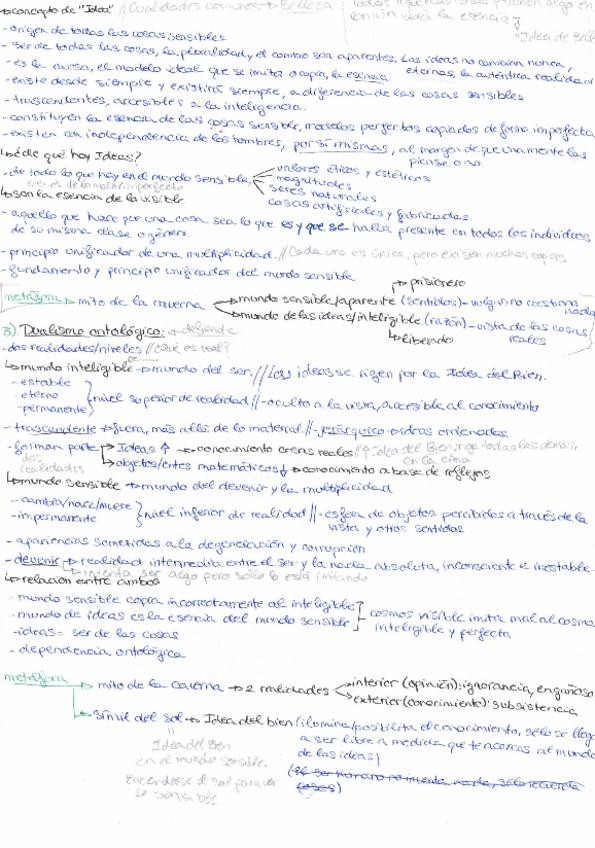 ↳ concepto de "Idea" // Cualidades comunes → Belleza
"Idea de Bell
- origen de todas las cosas sensibles
- ser de todas las cosas, la pluralidad y el cambio son aparentes. Las ideas no cambian nunca,
- es la causa, el modelo ideal que se imita o copia, la esencia eternas, la auténtica realidad
- existe desde siempre y existirá siempre, a diferencia de las cosas sensibles
- trascendentes, accesibles a la inteligencia.
- constituyen la esencia de las cosas sensible, modelos perfectos copiados de forma imperfecta
- existen con independencia de los hombres, por sí mismas, al margen de que una mente las
piense o no.
↳ ¿de qué hay Ideas?
- de todo lo que hay en el mundo sensible,
valores éticos y estéticos
magnitudes
seres naturales
cosas artificiales y fabricadas
↳ son la esencia de lo visible
- aquello que hace que una cosa sea lo que es y que se halla presente en todos los individuos
de su misma clase o género.
- principio unificador de una multiplicidad. // Cada una es única, pero existen muchas copias
- fundamento y principio unificador del mundo sensible
→ prisionero
metáfora → mito de la caverna
mundo sensible/aparente (sentidos) - vulgo, no cuestiona nada
mundo de las ideas/inteligible (razón) - vista de las cosas
reales
↳ liberado
3) Dualismo ontológico: → defiende
- dos realidades/niveles // ¿Qué es real?
↳ mundo inteligible → mundo del ser. // Las ideas se rigen por la Idea del Bien.
- estable
- eterno
- permanente
nivel superior de realidad // - oculto a la vista, accesible al conocimiento
- trascendente → fuera, más allá de lo material // - jerárquico → ideas ordenadas
- forman parte → Ideas ↑ → conocimiento cosas reales // ↑ Idea del Bien, rige todas las demás,
en la cima
dos
realidades
objetos/entes matemáticos ↓ → conocimiento a base de reflejos
↳ mundo sensible → mundo del devenir y la multiplicidad
- cambia/nace/muere
- impermanente
nivel inferior de realidad // - esfera de objetos percibidos a través de la
vista y otros sentidos
- apariencias sometidas a la degeneración y corrupción
- devenir → realidad intermedia entre el ser y la nada absoluta, inconsciente e inestable.
↳ intenta ser algo pero sólo lo está imitando
↳ relación entre ambos
- mundo sensible copia incorrectamente al inteligible
- mundo de ideas es la esencia del mundo sensible
cosmos visible imita mal al cosmo
inteligible y perfecto
- ideas = ser de las cosas
- dependencia ontológica
metáfora → mito de la caverna → 2 realidades
interior (opinión): ignorancia, engañoso
exterior (conocimiento): subsistencia
↳ Símil del sol → Idea del bien (ilumina/posibilita el conocimiento, sólo se llega
a ser libre a medida que te acercas al mundo
de las ideas)
(el ser humano no inventa nada, sólo recuerda
cosas)
Idea del Bien
en el mundo sensible.
Enciéndese el sol para ver
lo sensible